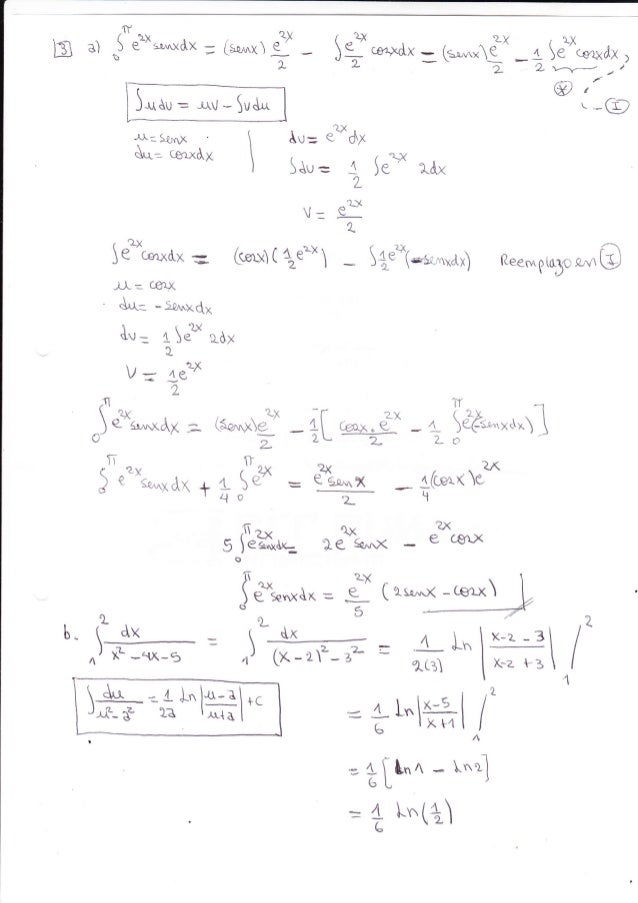 13 a) ∫₀^π e^{2x} senx dx = (senx) e^{2x}/2 − ∫ e^{2x}/2 cosx dx = (senx) e^{2x}/2 − 1/2 ∫ e^{2x} cosx dx,
(*) (I)
∫u dv = uv − ∫v du
u = senx
du = cosx dx
dv = e^{2x} dx
∫dv = 1/2 ∫ e^{2x} 2dx
V = e^{2x}/2
∫ e^{2x} cosx dx = (cosx)(1/2 e^{2x}) − ∫ 1/2 e^{2x} (−senx dx) Reemplazo en (I)
u = cosx
du = −senx dx
dv = 1/2 ∫ e^{2x} 2dx
V = 1/2 e^{2x}
∫₀^π e^{2x} senx dx = (senx) e^{2x}/2 − 1/2 [ cosx . e^{2x}/2 − 1/2 ∫₀^π e^{2x} (−senx dx) ]
∫₀^π e^{2x} senx dx + 1/4 ∫₀^π e^{2x} = e^{2x} senx/2 − 1/4 (cosx) e^{2x}
5 ∫₀^π e^{2x} senx dx = 2e^{2x} senx − e^{2x} cosx
∫₀^π e^{2x} senx dx = e^{2x}/5 (2senx − cosx)
b. ∫₁² dx/(x² − 4x − 5) = ∫₁² dx/((x−2)² − 3²) = 1/2(3) Ln |(x−2 − 3)/(x−2 + 3)| /₁²
∫ du/(u² − a²) = 1/2a Ln |(u−a)/(u+a)| + C
= 1/6 Ln |(x−5)/(x+1)| /₁²
= 1/6 [Ln1 − Ln2]
= 1/6 Ln(1/2)